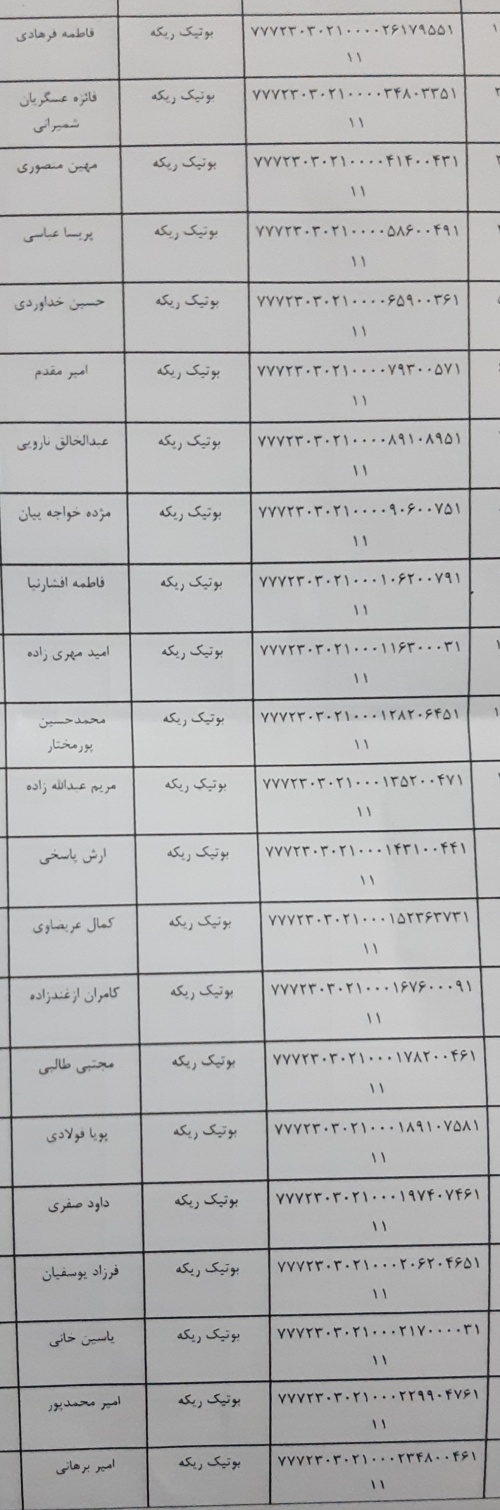 ۱ ۷۷۷۲۳۰۳۰۲۱۰۰۰۰۲۶۱۷۹۵۵۱ بوتیک ریکه فاطمه فرهادی
۱۱
۷۷۷۲۳۰۳۰۲۱۰۰۰۰۳۴۸۰۳۳۵۱ بوتیک ریکه فائزه عسگریان
۱۱ شمیرانی
۷۷۷۲۳۰۳۰۲۱۰۰۰۰۴۱۴۰۰۴۳۱ بوتیک ریکه مهین منصوری
۱۱
۷۷۷۲۳۰۳۰۲۱۰۰۰۰۵۸۶۰۰۴۹۱ بوتیک ریکه پریسا عباسی
۱۱
۷۷۷۲۳۰۳۰۲۱۰۰۰۰۶۵۹۰۰۳۶۱ بوتیک ریکه حسین خداوردی
۱۱
۷۷۷۲۳۰۳۰۲۱۰۰۰۰۷۹۳۰۰۵۷۱ بوتیک ریکه امیر مقدم
۱۱
۷۷۷۲۳۰۳۰۲۱۰۰۰۰۸۹۱۰۸۹۵۱ بوتیک ریکه عبدالخالق نارویی
۱۱
۷۷۷۲۳۰۳۰۲۱۰۰۰۰۹۰۶۰۰۷۵۱ بوتیک ریکه مژده خواجه پیان
۱۱
۷۷۷۲۳۰۳۰۲۱۰۰۰۱۰۶۲۰۰۷۹۱ بوتیک ریکه فاطمه افشارنیا
۱۱
۷۷۷۲۳۰۳۰۲۱۰۰۰۱۱۶۳۰۰۰۳۱ بوتیک ریکه امید مهری زاده
۱۱
۷۷۷۲۳۰۳۰۲۱۰۰۰۱۲۸۲۰۶۴۵۱ بوتیک ریکه محمدحسین
۱۱ پورمختار
۷۷۷۲۳۰۳۰۲۱۰۰۰۱۳۵۲۰۰۴۷۱ بوتیک ریکه مریم عبدالله زاده
۱۱
۷۷۷۲۳۰۳۰۲۱۰۰۰۱۴۳۱۰۰۴۴۱ بوتیک ریکه ارش پاسخی
۱۱
۷۷۷۲۳۰۳۰۲۱۰۰۰۱۵۲۳۶۳۷۳۱ بوتیک ریکه کمال عریضاوی
۱۱
۷۷۷۲۳۰۳۰۲۱۰۰۰۱۶۷۶۰۰۰۹۱ بوتیک ریکه کامران ازغندزاده
۱۱
۷۷۷۲۳۰۳۰۲۱۰۰۰۱۷۸۲۰۰۴۶۱ بوتیک ریکه مجتبی طالبی
۱۱
۷۷۷۲۳۰۳۰۲۱۰۰۰۱۸۹۱۰۷۵۸۱ بوتیک ریکه پویا فولادی
۱۱
۷۷۷۲۳۰۳۰۲۱۰۰۰۱۹۷۴۰۷۴۶۱ بوتیک ریکه داود صفری
۱۱
۷۷۷۲۳۰۳۰۲۱۰۰۰۲۰۶۲۰۴۶۵۱ بوتیک ریکه فرزاد یوسفیان
۱۱
۷۷۷۲۳۰۳۰۲۱۰۰۰۲۱۷۰۰۰۰۳۱ بوتیک ریکه یاسین خانی
۱۱
۷۷۷۲۳۰۳۰۲۱۰۰۰۲۲۹۹۰۴۷۶۱ بوتیک ریکه امیر محمدپور
۱۱
۷۷۷۲۳۰۳۰۲۱۰۰۰۲۳۴۸۰۰۴۶۱ بوتیک ریکه امیر برهانی
۱۱